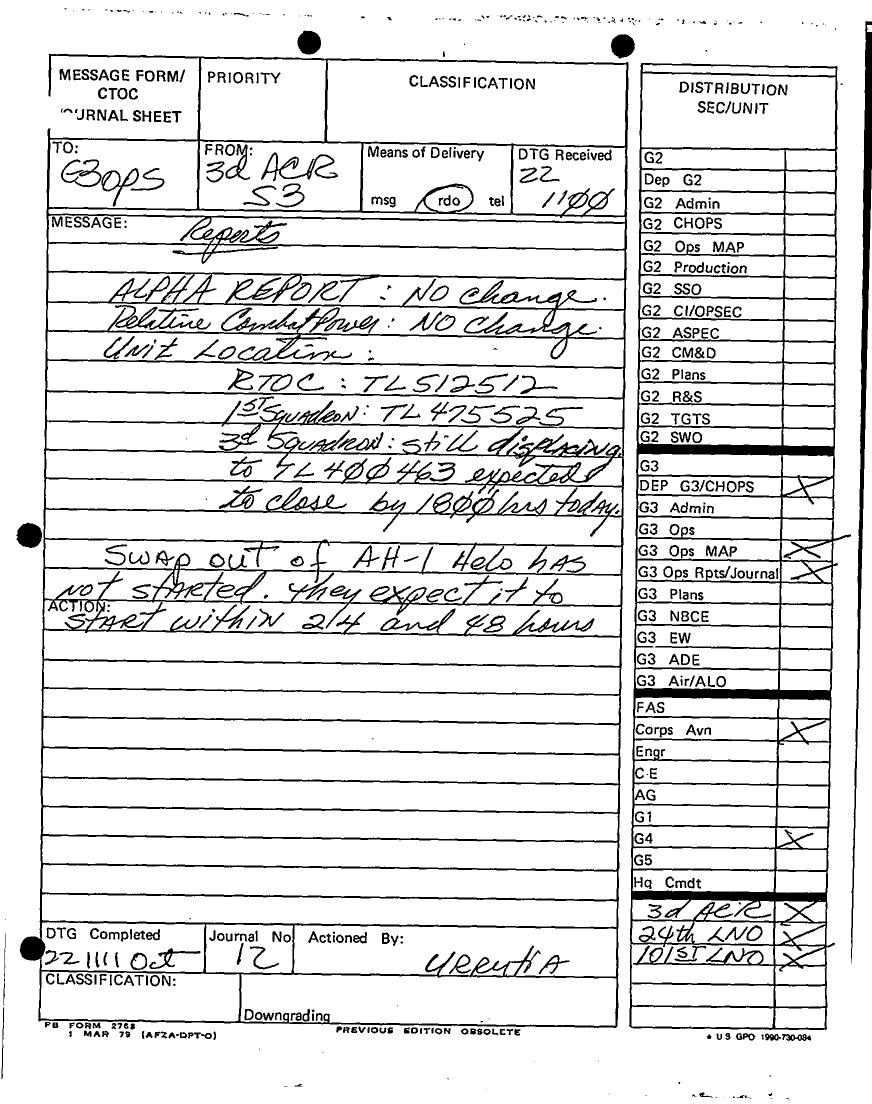 MESSAGE FORM/
CTOC
URNAL SHEET
PRIORITY
CLASSIFICATION
TO:
G3OPS
FROM:
3d ACR
S3
Means of Delivery
msg rdo tel
DTG Received
22
1100
MESSAGE:
Reports
ALPHA REPORT : NO change.
Relative Combat Power: NO change.
Unit Location :
RTOC : TL512512
1ST SQUADRON: TL 475525
3d SQUADRON: still displacing
to TL 400463 expected
to close by 1800 hrs today.
SWAP out of AH-1 Helo HAS
not started. they expect it to
ACTION:
START within 24 and 48 hours
DTG Completed
221111 Oct
Journal No
12
Actioned By:
URRUTIA
CLASSIFICATION:
Downgrading
FB FORM 2768
1 MAR 79 (AFZA-DPT-O)
PREVIOUS EDITION OBSOLETE
DISTRIBUTION
SEC/UNIT
G2
Dep G2
G2 Admin
G2 CHOPS
G2 Ops MAP
G2 Production
G2 SSO
G2 CI/OPSEC
G2 ASPEC
G2 CM&D
G2 Plans
G2 R&S
G2 TGTS
G2 SWO
G3
DEP G3/CHOPS X
G3 Admin
G3 Ops
G3 Ops MAP X
G3 Ops Rpts/Journal X
G3 Plans
G3 NBCE
G3 EW
G3 ADE
G3 Air/ALO
FAS
Corps Avn X
Engr
C-E
AG
G1
G4 X
G5
Hq Cmdt
3d ACR X
24th LNO X
101ST LNO X
* US GPO 1990-730-084